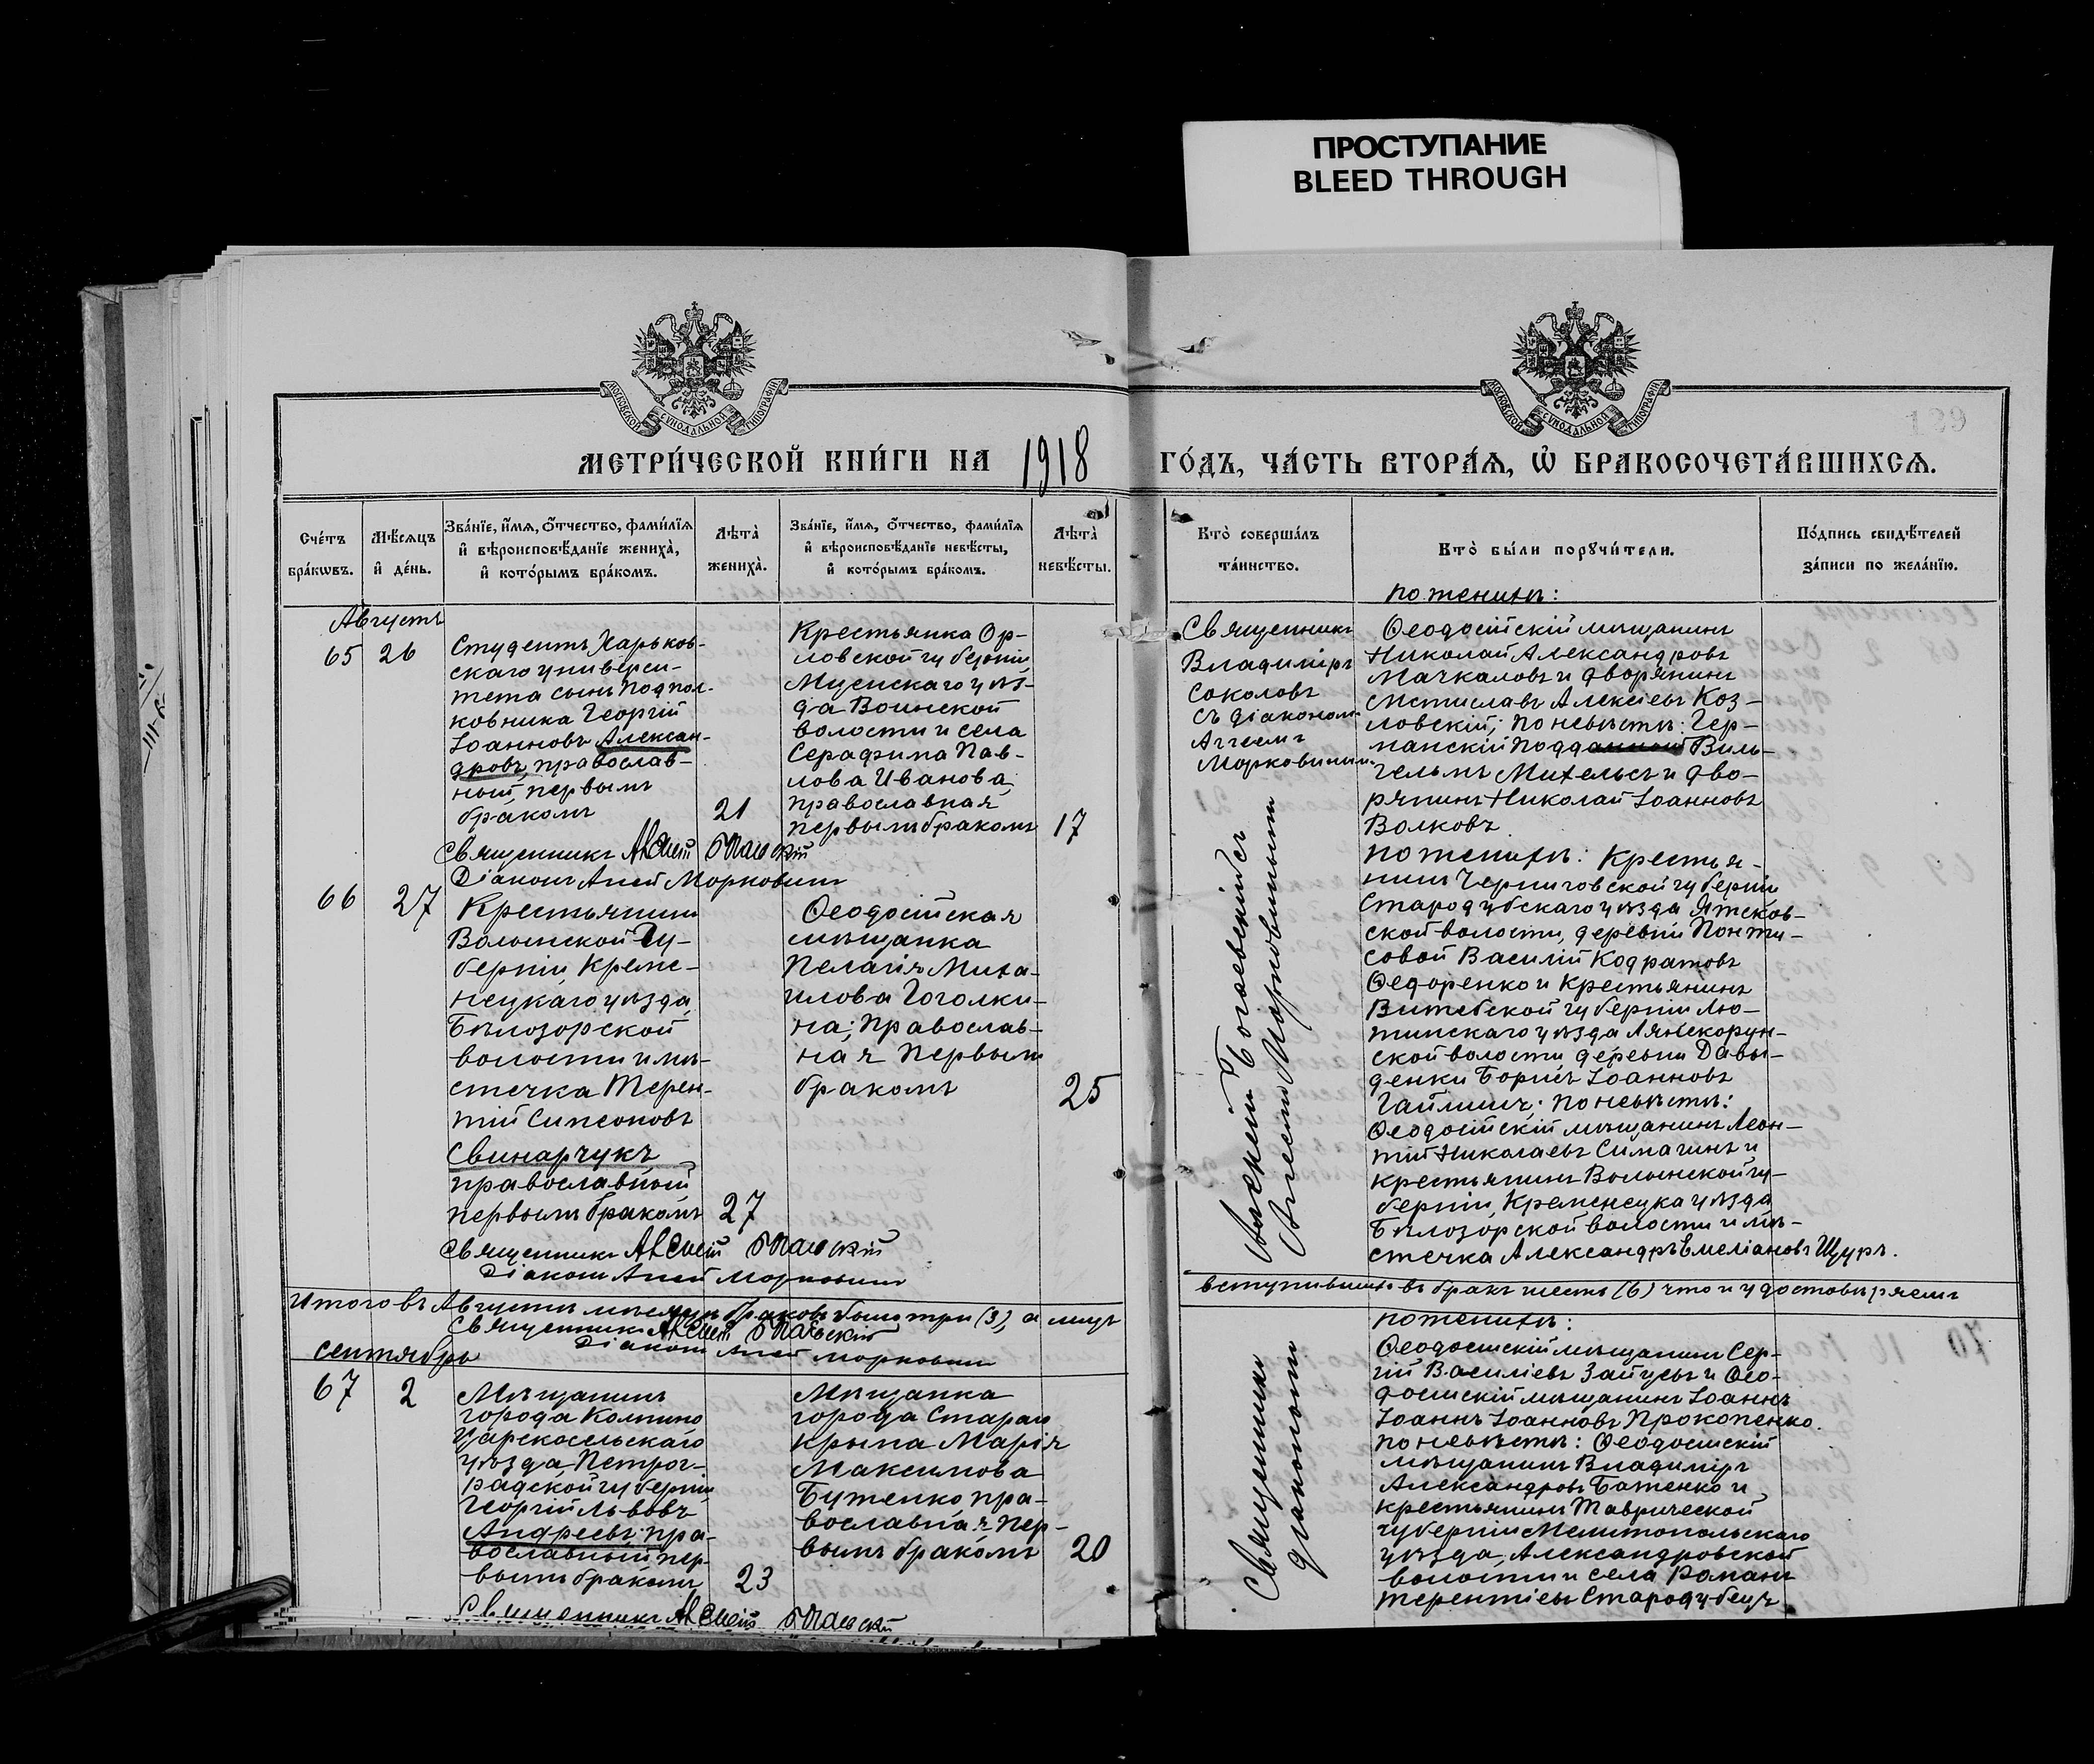 ПРОСТУПАНИЕ
BLEED THROUGH
МОСКОВСКОЙ СУНОДАЛЬНОЙ ТИПОГРАФІИ
МОСКОВСКОЙ СУНОДАЛЬНОЙ ТИПОГРАФІИ
139
МЕТРИ́ЧЕСКОЙ КНИ́ГИ НА 1918 ГО́ДЪ, ЧА́СТЬ ВТОРА́Я, Ѽ БРАКОСОЧЕТА́ВШИХСѦ.
Сче́тъ
бра́кѡвъ.
Мѣ́сѧцъ
и҆ де́нь.
Зва́нїе, и҆́мѧ, ѻ҆́тчество, фами́лїѧ
и҆ вѣроисповѣ́данїе жениха̀,
и҆ кото́рымъ бра́комъ.
Лѣ́та̀
жениха̀.
Зва́нїе, и҆́мѧ, ѻ҆́тчество, фами́лїѧ
и҆ вѣроисповѣ́данїе невѣ́сты,
и҆ кото́рымъ бра́комъ.
Лѣ́та̀
невѣ́сты.
Кто̀ соверша́лъ
та́инство.
Кто̀ бы́ли порꙋчи́тели.
По́дпись свидѣ́телей
за́писи по жела́нїю.
Августъ
65
26
Студентъ Харьков-
скаго универси-
тета сынъ подпол-
ковника Георгій
Іоанновъ Алексан-
дровъ, православ-
ный, первымъ
бракомъ
21
Крестьянка Ор-
ловской губерніи
Мценскаго уѣз-
да Воинской
волости и села
Серафима Пав-
лова Иванова,
православная
первымъ бракомъ
17
Священникъ
Владиміръ
Соколовъ
съ діакономъ
Аггеемъ
Морковинымъ
по женихѣ:
Ѳеодосійскій мѣщанинъ
Николай Александровъ
Мачкаловъ и дворянинъ
Мстиславъ Алексіевъ Коз-
ловскій; по невѣстѣ: Гер-
манскій подданный Виль-
гельмъ Михельсъ и дво-
рянинъ Николай Іоанновъ
Волковъ.
Священникъ Алексій
Діаконъ Аггей Морковинъ
66
27
Крестьянинъ
Волынской Гу-
берніи, Креме-
нецкаго уѣзда,
Бѣлозорской
волости и мѣ-
стечка Терен-
тій Симеоновъ
Свинарчукъ
православный
первымъ бракомъ
27
Ѳеодосійская
мѣщанка
Пелагія Миха-
илова Гоголки-
на; православ-
ная первымъ
бракомъ
25
Алексій
Аггеемъ Морковинымъ
по женихѣ: Крестья-
нинъ Черниговской губерніи
Стародубскаго уѣзда
ской волости, деревни
совой Василій Кодратовъ
Ѳедоренко и Крестьянинъ
Витебской губерніи Лю-
цинскаго уѣзда Лянскорун-
ской волости деревни Давы-
денки Борисъ Іоанновъ
Гайлишъ; по невѣстѣ:
Ѳеодосійскій мѣщанинъ Леон-
тій Николаевъ Симагинъ и
крестьянинъ Волынской гу-
берніи, Кременецка уѣзда
Бѣлозорской волости и мѣ-
стечка Александръ Емеліановъ Щуръ.
Священникъ Алексій
Діаконъ Аггей Морковинъ
Итого въ Августѣ мѣсяцѣ браковъ было три (3), а лицъ
вступившихъ въ бракъ шесть (6) что и удостовѣряемъ
Священникъ Алексій
Діаконъ Аггей Морковинъ
сентябрь
67
2
Мѣщанинъ
города Колпино
Царскосельскаго
уѣзда, Петрог-
радской губерніи
Георгій Львовъ
Андреевъ; пра-
вославный пер-
вымъ бракомъ
23
Мѣщанка
города Стараго
Крыма Марія
Максимова
Бутенко пра-
вославная пер-
вымъ бракомъ
20
Священникъ
діакономъ
по женихѣ:
Ѳеодосійскій мѣщанинъ Сер-
гій Василіевъ Зайцевъ и Ѳео-
досійскій мѣщанинъ Іоаннъ
Іоаннъ Іоанновъ Прокопенко.
по невѣстѣ: Ѳеодосійскій
мѣщанинъ Владиміръ
Александровъ Батенко и
крестьянинъ Таврической
губерніи Мелитопольскаго
уѣзда, Александровской
волости и села Романъ
Терентіевъ Стародубецъ
Священникъ Алексій